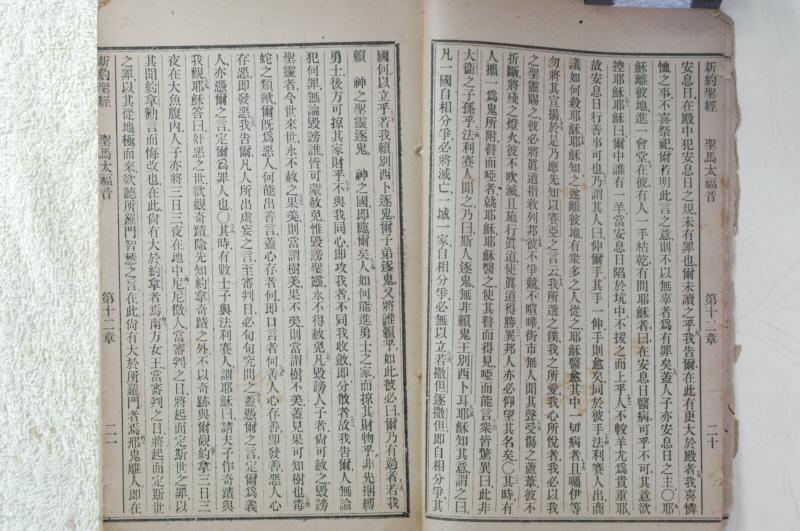 新約聖經 聖馬太福音 第十二章 二十
安息日在殿中犯安息日之規未有罪也爾未讀之乎我告爾在此有更大於殿者我喜憐
恤之事不喜祭祀爾若明此言之意則不以無辜者爲有罪矣蓋人子亦安息日之主〇耶
穌離彼地進一會堂在彼有人一手枯乾有問耶穌者曰在安息日醫病可乎不可其意欲
控耶穌耶穌曰爾中誰有一羊當安息日陷於坑中不援之而上乎人不較羊尤爲貴重耶
故安息日行善事可也乃謂其人曰伸爾手其手一伸手則愈矣同於彼手法利賽人出商
議如何殺耶穌耶穌知之遂離彼地有衆多人從之耶穌醫愈其中一切病者且囑伊等
勿將其宣揚於是乃應先知以賽亞之言云我所選之僕我之所愛我心所悅者我必以我
之聖靈賜之彼必將眞道指教列邦彼不爭競不喧嘩街市無人聞其聲受傷之蘆葦彼不
折斷將殘之燈火彼不吹滅且施行眞道使眞道得勝異邦人亦必仰望其名矣〇其時有
人攜一爲鬼所附瞽而啞者就耶穌耶穌醫之使其瞽而得見啞而能言衆皆驚異曰此非
大衞之子孫乎法利賽人聞之乃曰斯人逐鬼無非賴鬼王別西卜耳耶穌知其意謂之曰
凡一國自相分爭必將滅亡一城一家自相分爭必無以立若撒但逐撒但即自相分爭其
國何以立乎若我賴別西卜逐鬼爾子弟逐鬼又將誰賴乎如此彼必曰爾乃有過者若我
賴 神之聖靈逐鬼 神之國即臨爾矣人如何能進勇士之家而掠其財物乎非先捆縛
勇士後方可掠其家財乎不與我同心即攻我者不同我收斂即分散者故我告爾人無論
犯何罪無論毀謗誰皆可蒙赦免惟毀謗聖靈永不得赦免凡毀謗人子者尙可赦之毀謗
聖靈者今世來世永不赦之果美則當謂樹美果不美則當謂樹不美蓋見果可知樹也毒
蛇之類歟爾旣爲惡人何能出善言蓋心存者何即口言者何善人心存善即發善惡人心
存惡即發惡我告爾凡人所出虛妄之言至審判日必句句究問之蓋憑爾之言定爾爲義
人亦憑爾之言定爾爲罪人也〇其時有數士子與法利賽人謂耶穌曰請夫子作奇蹟與
我觀耶穌答曰奸惡之世欲觀奇蹟除先知約拿奇蹟之外不以奇跡與爾觀約拿三日三
夜在大魚腹內人子亦將三日三夜在地中尼尼微人當審判之日將起而定斯世之罪以
其聞約拿勸言而悔改也在此尙有大於約拿者焉南方女王當審判之日將起而定斯世
之罪以其從地極而來欲聽所羅門智慧之言在此尙有大於所羅門者焉邪鬼離人即在
新約聖經 聖馬太福音 第十二章 二一